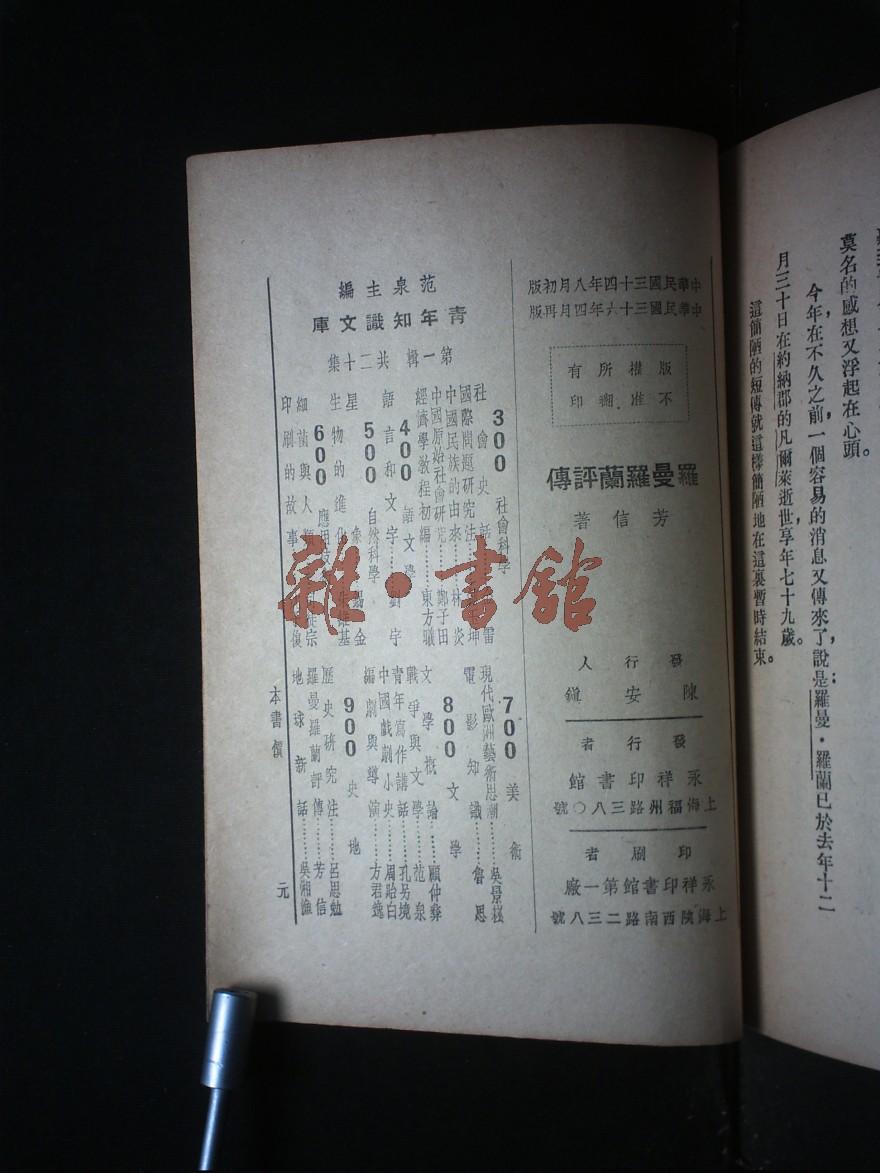 莫名的感想又浮起在心頭。
今年在不久之前,一個容易的消息又傳來了,說是羅曼·羅蘭已於去年十二
月三十日在約納郡的凡爾萊逝世,享年七十九歲。
這簡陋的短傳就這樣簡陋地在這裏暫時結束。
中華民國三十四年八月初版
中華民國三十六年四月再版
版權所有
不准翻印
羅曼羅蘭評傳
芳信著
發行人
陳安鎮
發行者
永祥印書館
上海福州路三八〇號
印刷者
永祥印書館第一廠
上海陝西南路二三八號
范泉主編
青年知識文庫
第一輯 共二十集
300 社會科學
社會史話
國際問題研究法
中國民族的由來……林炎
中國原始社會研究……鄭子田
經濟學教程初編……東方曦
400 語文學
語言和文字……劉宇
500 自然科學
星象
生物的進化
600
細菌與人類
印刷的故事
700 美術
現代歐洲藝術思潮……吳景崧
電影知識……魯思
800 文學
文學概論……顧仲彝
戰爭與文學……范泉
青年寫作講話……孔另境
中國戲劇小史……周貽白
編劇與導演……方君逸
900 史地
歷史研究法……呂思勉
羅曼羅蘭評傳……芳信
地球新話……吳湘漁
本書價 元
雜·書館